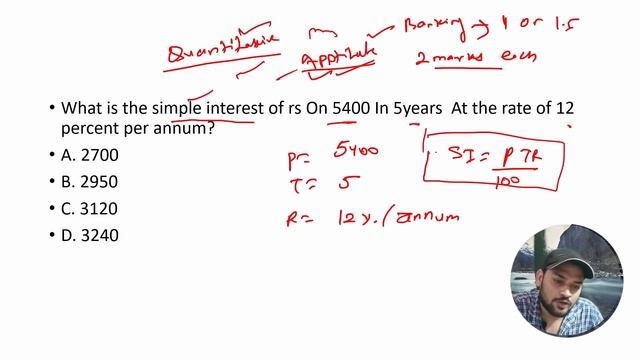 Quantitative
Apptitude
Banking → 1 or 1.5
2 marks each
• What is the simple interest of rs On 5400 In 5years At the rate of 12
percent per annum?
• A. 2700
• B. 2950
• C. 3120
• D. 3240
P= 5400
T= 5
R= 12%/annum
SI = PTR
100